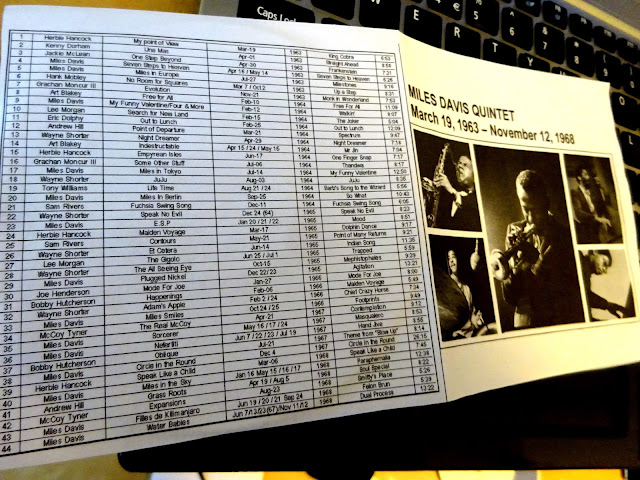 1 Herbie Hancock My point of View Mar-19 1963 King Cobra 6:53
2 Kenny Dorham Una Mas Apr-01 1963 Straight Ahead 8:58
3 Jackie McLean One Step Beyond Apr-30 1963 Frankenstein 7:31
4 Miles Davis Seven Steps to Heaven Apr 16 / May 14 1963 Seven Steps to Heaven 6:26
5 Miles Davis Miles in Europe Jul-27 1963 Milestones 9:16
6 Hank Mobley No Room for Squares Mar 7 / Oct 2 1963 Up a Step 8:31
7 Grachan Moncur III Evolution Nov-21 1963 Monk in Wonderland 7:53
8 Art Blakey Free for All Feb-10 1964 Free For All 11:09
9 Miles Davis My Funny Valentine/Four & More Feb-12 1964 Walkin' 8:07
10 Lee Morgan Search for New Land Feb-15 1964 The Joker 5:04
11 Eric Dolphy Out to Lunch Feb-25 1964 Out to Lunch 12:09
12 Andrew Hill Point of Departure Mar-21 1964 Spectrum 9:47
13 Wayne Shorter Night Dreamer Apr-29 1964 Night Dreamer 7:18
14 Art Blakey Indestructable Apr 15 / 24 / May 15 1964 Mr Jin 7:04
15 Herbie Hancock Empyrean Isles Jun-17 1964 One Finger Snap 7:17
16 Grachan Moncur III Some Other Stuff Jul-06 1964 Thandiwa 8:17
17 Miles Davis Miles in Tokyo Jul-14 1964 My Funny Valentine 12:50
18 Wayne Shorter JuJu Aug-03 1964 JuJu 8:35
19 Tony Williams Life Time Aug 21 / 24 1964 Barb's Song to the Wizard 5:56
20 Miles Davis Miles In Berlin Sep-25 1964 So What 10:43
21 Sam Rivers Fuchsia Swing Song Dec-11 1964 Fuchsia Swing Song 6:05
22 Wayne Shorter Speak No Evil Dec 24 (64) 1965 Speak No Evil 8:22
23 Miles Davis E.S.P Jan 20 / 21 / 22 1965 Mood 8:51
24 Herbie Hancock Maiden Voyage Mar-17 1965 Dolphin Dance 9:17
25 Sam Rivers Contours May-21 1965 Point of Many Returns 9:21
26 Wayne Shorter Et Cetera Jun-14 1965 Indian Song 11:35
27 Lee Morgan The Gigolo Jun 25 / Jul 1 1965 Trapped 5:59
28 Wayne Shorter The All Seeing Eye Oct-15 1965 Mephistopheles 9:39
29 Miles Davis Plugged Nickel Dec 22/23 1965 Agitation 13:21
30 Joe Henderson Mode For Joe Jan-27 1966 Mode For Joe 8:00
31 Bobby Hutcherson Happenings Feb-08 1966 Maiden Voyage 5:49
32 Wayne Shorter Adam's Apple Feb 2 / 24 1966 Footprints 9:49
33 Miles Davis Miles Smiles Oct 24 / 25 1966
34 McCoy Tyner The Real McCoy Apr 21 1967 Contemplation 9:12
35 Miles Davis Sorcerer May 16 / 17 / 24 1967 Masqualero 8:53
36 Miles Davis Nefertiti Jun 7 / 22 / 23 / Jul 19 1967 Hand Jive
37 Bobby Hutcherson Oblique Jul-21 1967 Theme from "Blow Up" 8:14
38 Miles Davis Circle in the Round Dec 4 1967 Circle in the Round 26:15
39 Herbie Hancock Speak Like a Child Mar-06 1968 Speak Like a Child 7:45
40 Miles Davis Miles in the Sky Jan 16 May 15 / 16 / 17 1968 Paraphernalia 12:38
41 Andrew Hill Grass Roots Apr 19 / Aug 5 1968 Soul Special 8:22
42 McCoy Tyner Expansions Aug-23 1968 Smitty's Place 5:26
43 Miles Davis Filles de Kilimanjaro Jun 19 / 20 / 21 Sep 24 1968 Felon Brun 5:29
44 Miles Davis Water Babies Jun 7/13/23(67)/Nov 11/12 1968 Dual Process 13:22
MILES DAVIS QUINTET
March 19, 1963 – November 12, 1968
Caps Lock